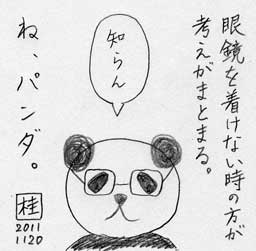 眼鏡を着けない時の方が
考えがまとまる。
知らん
ね、パンダ。
桂
2011
1120